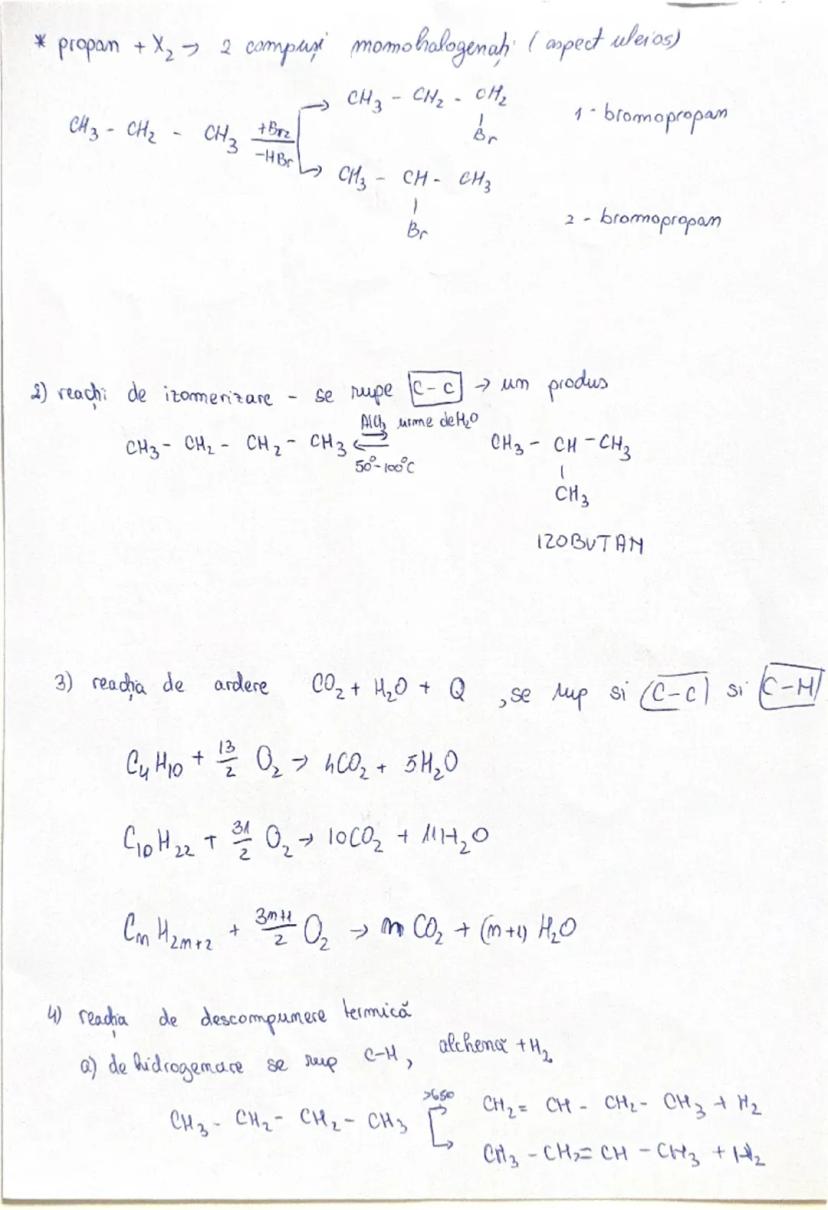 * propan + X₂ → 2 compuși monohalogenați (aspect uleios)
CH₃ - CH₂ - CH₂
Br
1 - bromopropan
CH₃ - CH₂ - CH₃ +Br₂ -HBr
CH₃ - CH - CH₃
Br
2 - bromopropan
2) reacții de izomerizare - se rupe C-C → un produs
CH₃ - CH₂ - CH₂ - CH₃ ⇌ AlCl₃ urme de H₂O 50°-100°C CH₃ - CH - CH₃
CH₃
IZOBUTAN
3) reacția de ardere CO₂ + H₂O + Q , se rup si C-C si C-H
C₄H₁₀ + 13/2 O₂ → 4CO₂ + 5H₂O
C₁₀H₂₂ + 31/2 O₂ → 10CO₂ + 11H₂O
CₙH₂ₙ₊₂ + 3n+1/2 O₂ → n CO₂ + (n+1) H₂O
4) reacția de descompunere termică
a) dehidrogenare se rup C-H, alchenă + H₂
CH₃ - CH₂ - CH₂ - CH₃ >650 CH₂ = CH - CH₂ - CH₃ + H₂
CH₃ - CH₂ = CH - CH₃ + H₂